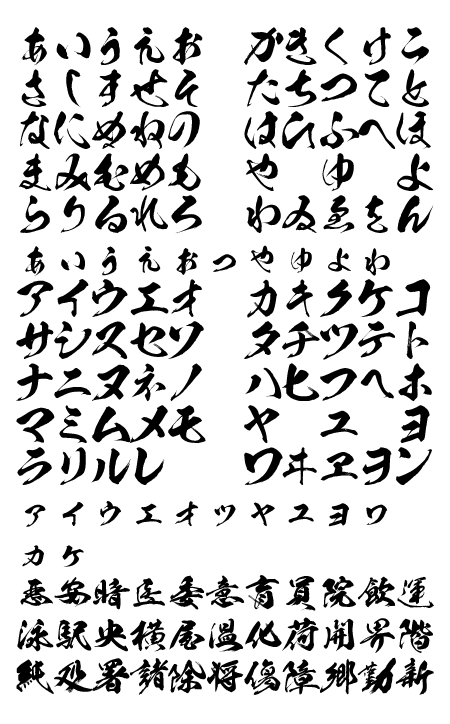 あいうえお かきくけこ
さしすせそ たちつてと
なにぬねの はひふへほ
まみむめも や ゆ よ
らりるれろ わゐゑをん
ぁぃぅぇぉっゃゅょゎ
アイウエオ カキクケコ
サシスセソ タチツテト
ナニヌネノ ハヒフヘホ
マミムメモ ヤ ユ ヨ
ラリルレ ワヰヱヲン
ァィゥェォッャュョヮ
ヵヶ
悪安暗医委意育員院飲運
泳駅央横屋温化荷開界階
純処署諸除将傷障郷勤新